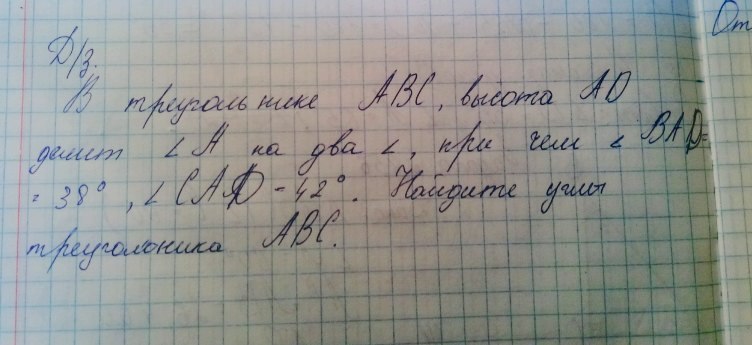 От
Д/з.
В треугольнике ABC, высота AD
делит ∠A на два ∠, при чем ∠ BAD=
= 38°, ∠CAD = 42°. Найдите углы
треугольника ABC.